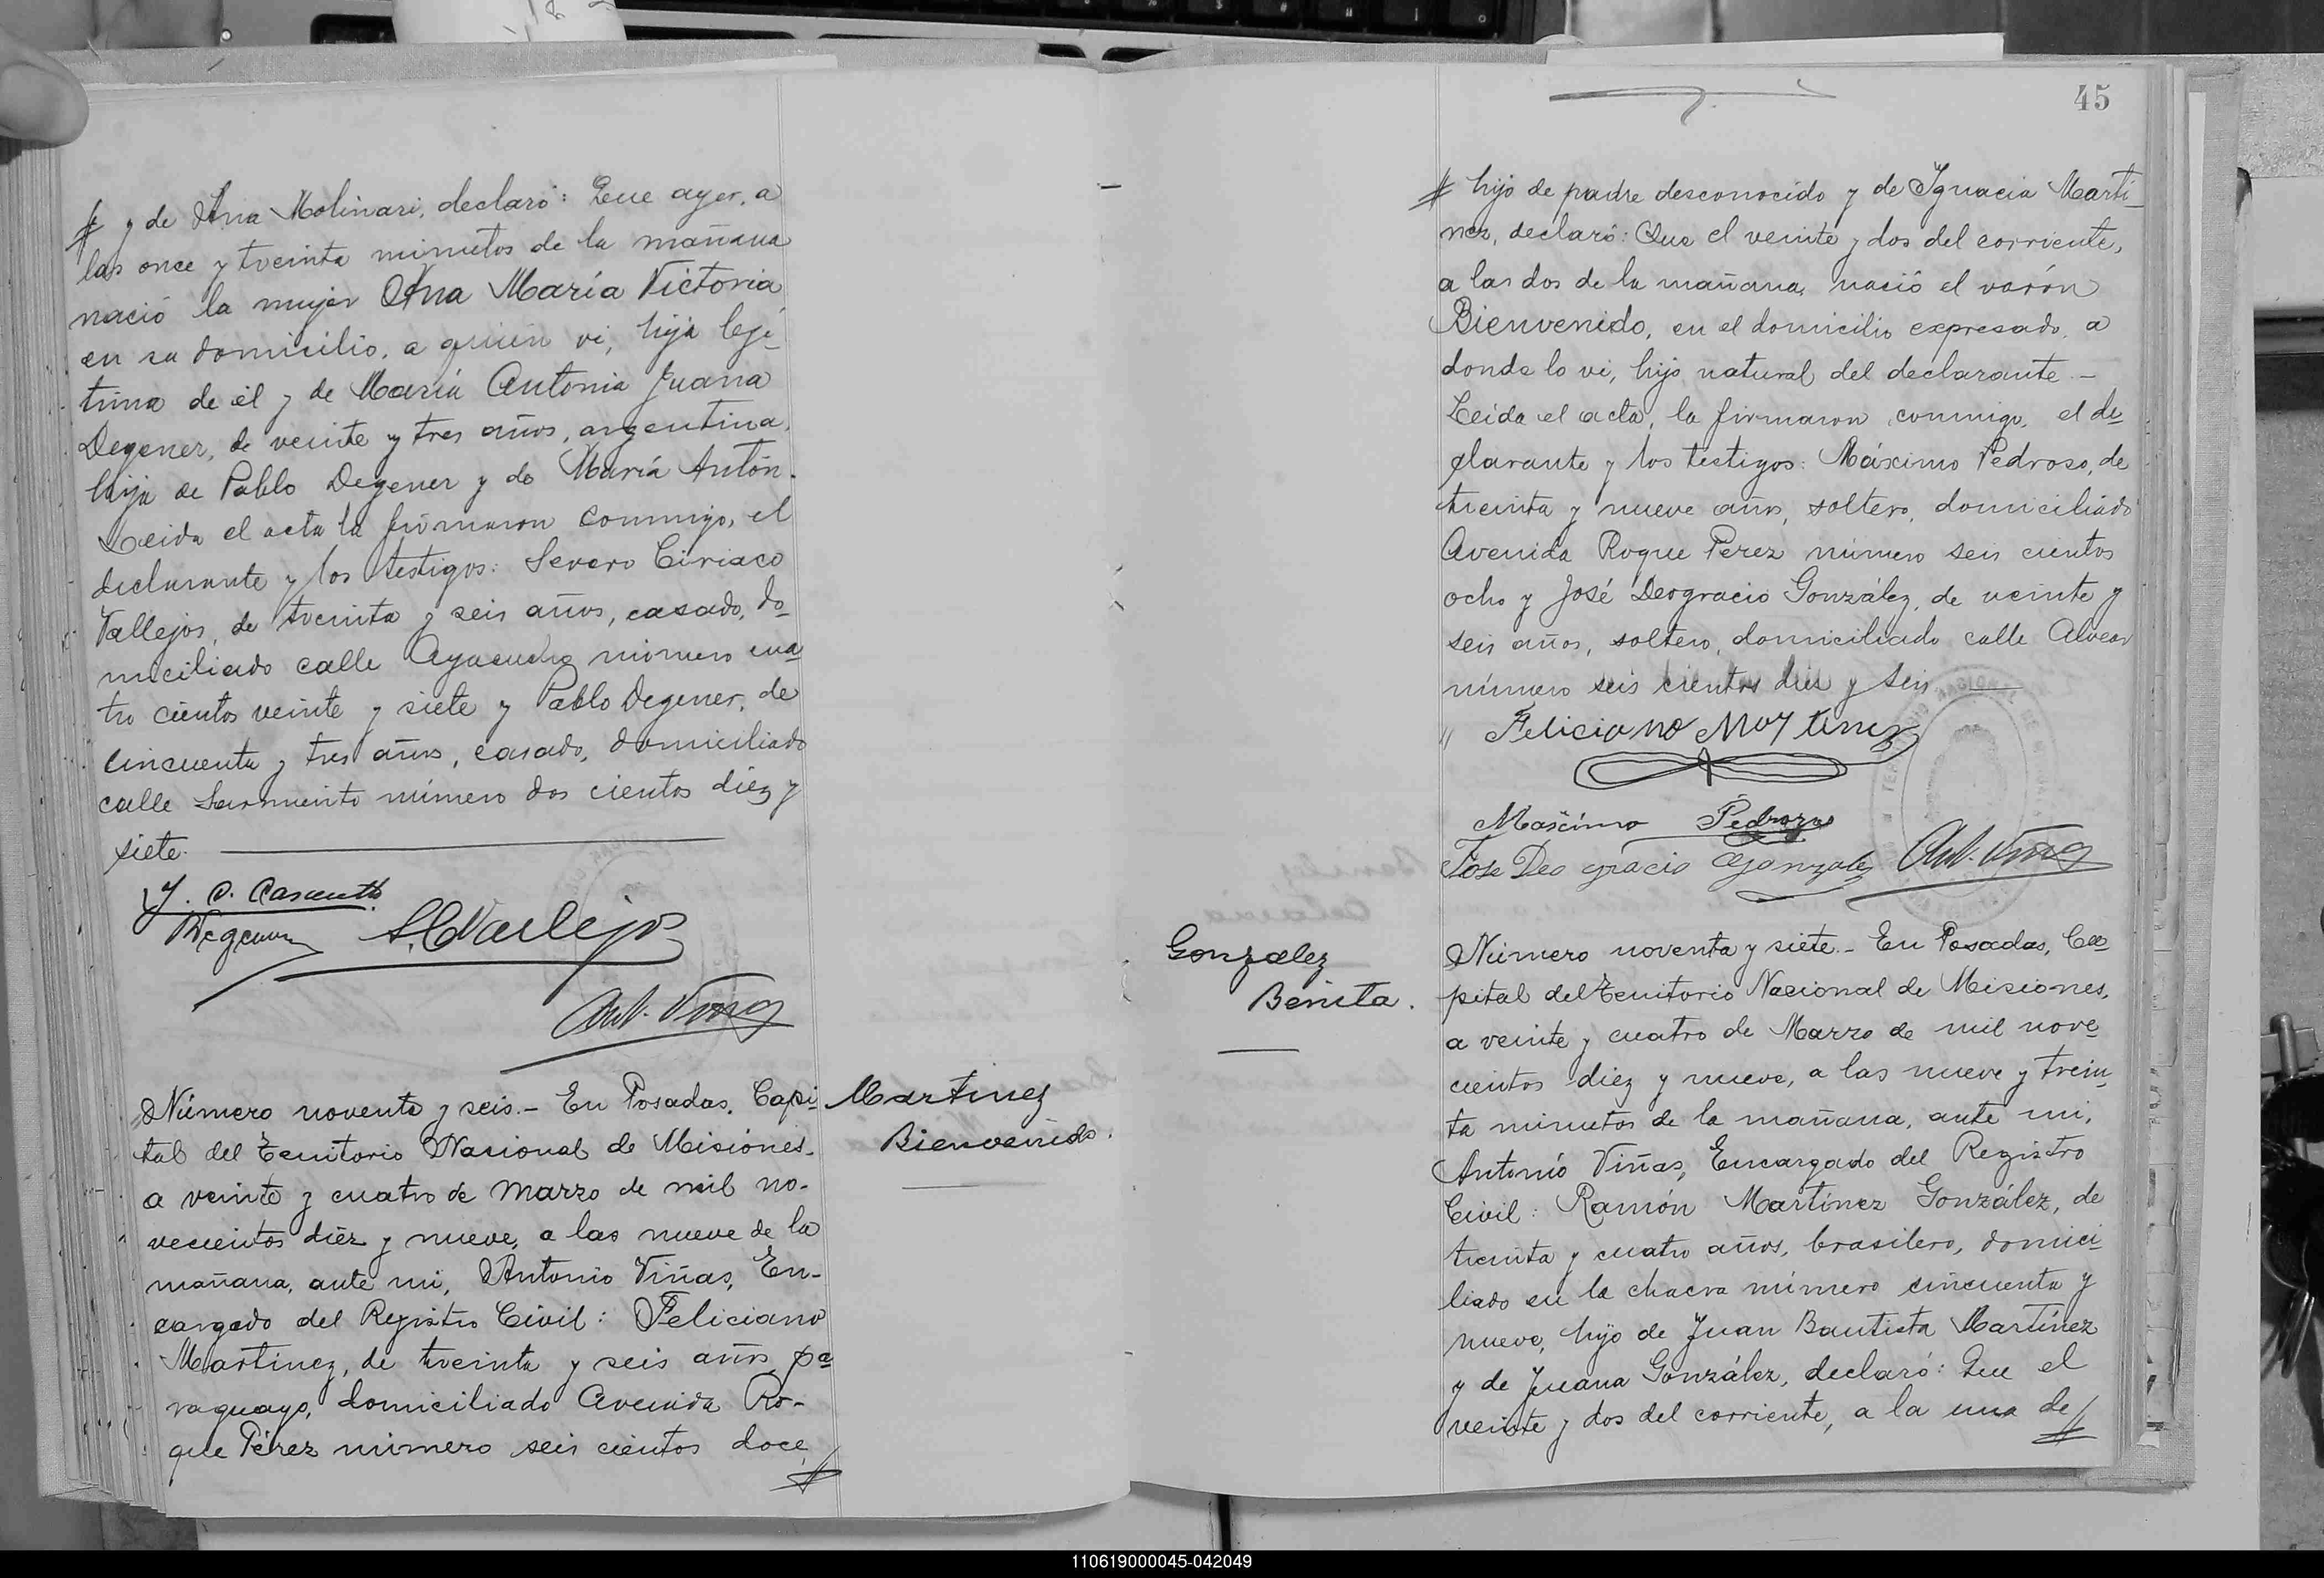 y de Ana Molinari, declaró: Que ayer, a
las once y treinta minutos de la mañana
nació la mujer Ana María Victoria
en su domicilio, a quien vi, hija legí-
tima de él y de María Antonia Juana
Degener, de veinte y tres años, argentina,
hija de Pablo Degener y de María Antón.
Leida el acta la firmaron conmigo, el
declarante y los testigos: Severo Ciriaco
Vallejos, de treinta y seis años, casado, do-
miciliado calle Ayacucho número cua-
tro cientos veinte y siete y Pablo Degener, de
cincuenta y tres años, casado, domiciliado
calle Sarmiento número dos cientos diez y
siete.
Degener S. C. Vallejos
Ant. Viñas
Número noventa y seis.- En Posadas, Capi-
tal del Territorio Nacional de Misiones,
a veinte y cuatro de Marzo de mil no-
vecientos diéz y nueve, a las nueve de la
mañana, ante mi, Antonio Viñas, En-
cargado del Registro Civil: Feliciano
Martinez, de treinta y seis años, pa-
raguayo, domiciliado Avenida Ro-
que Pérez número seis cientos doce,
Martinez
Bienvenido.
45
hijo de padre desconocido y de Ignacia Martí-
nez, declaró: Que el veinte y dos del corriente,
a las dos de la mañana, nació el varón
Bienvenido, en el domicilio expresado, a
donde lo vi, hijo natural del declarante.-
Leida el acta, la firmaron conmigo, el de-
clarante y los testigos: Máximo Pedroso, de
treinta y nueve años, soltero, domiciliado
Avenida Roque Perez número seis cientos
ocho y José Deogracio González, de veinte y
seis años, soltero, domiciliado calle Alvear
número seis cientos diez y seis
Feliciano Martinez
Mascimo Pedrozo
Jose Deo gracio Gonzalez Ant. Viñas
Gonzalez
Benita.
Número noventa y siete.- En Posadas, Ca-
pital del Territorio Nacional de Misiones,
a veinte y cuatro de Marzo de mil nove-
cientos diez y nueve, a las nueve y trein-
ta minutos de la mañana, ante mi,
Antonio Viñas, Encargado del Registro
Civil: Ramón Martínez González, de
treinta y cuatro años, brasilero, domici-
liado en la chacra número cincuenta y
nueve, hijo de Juan Bautista Martínez
y de Juana González, declaró: Que el
veinte y dos del corriente, a la una de
110619000045-042049